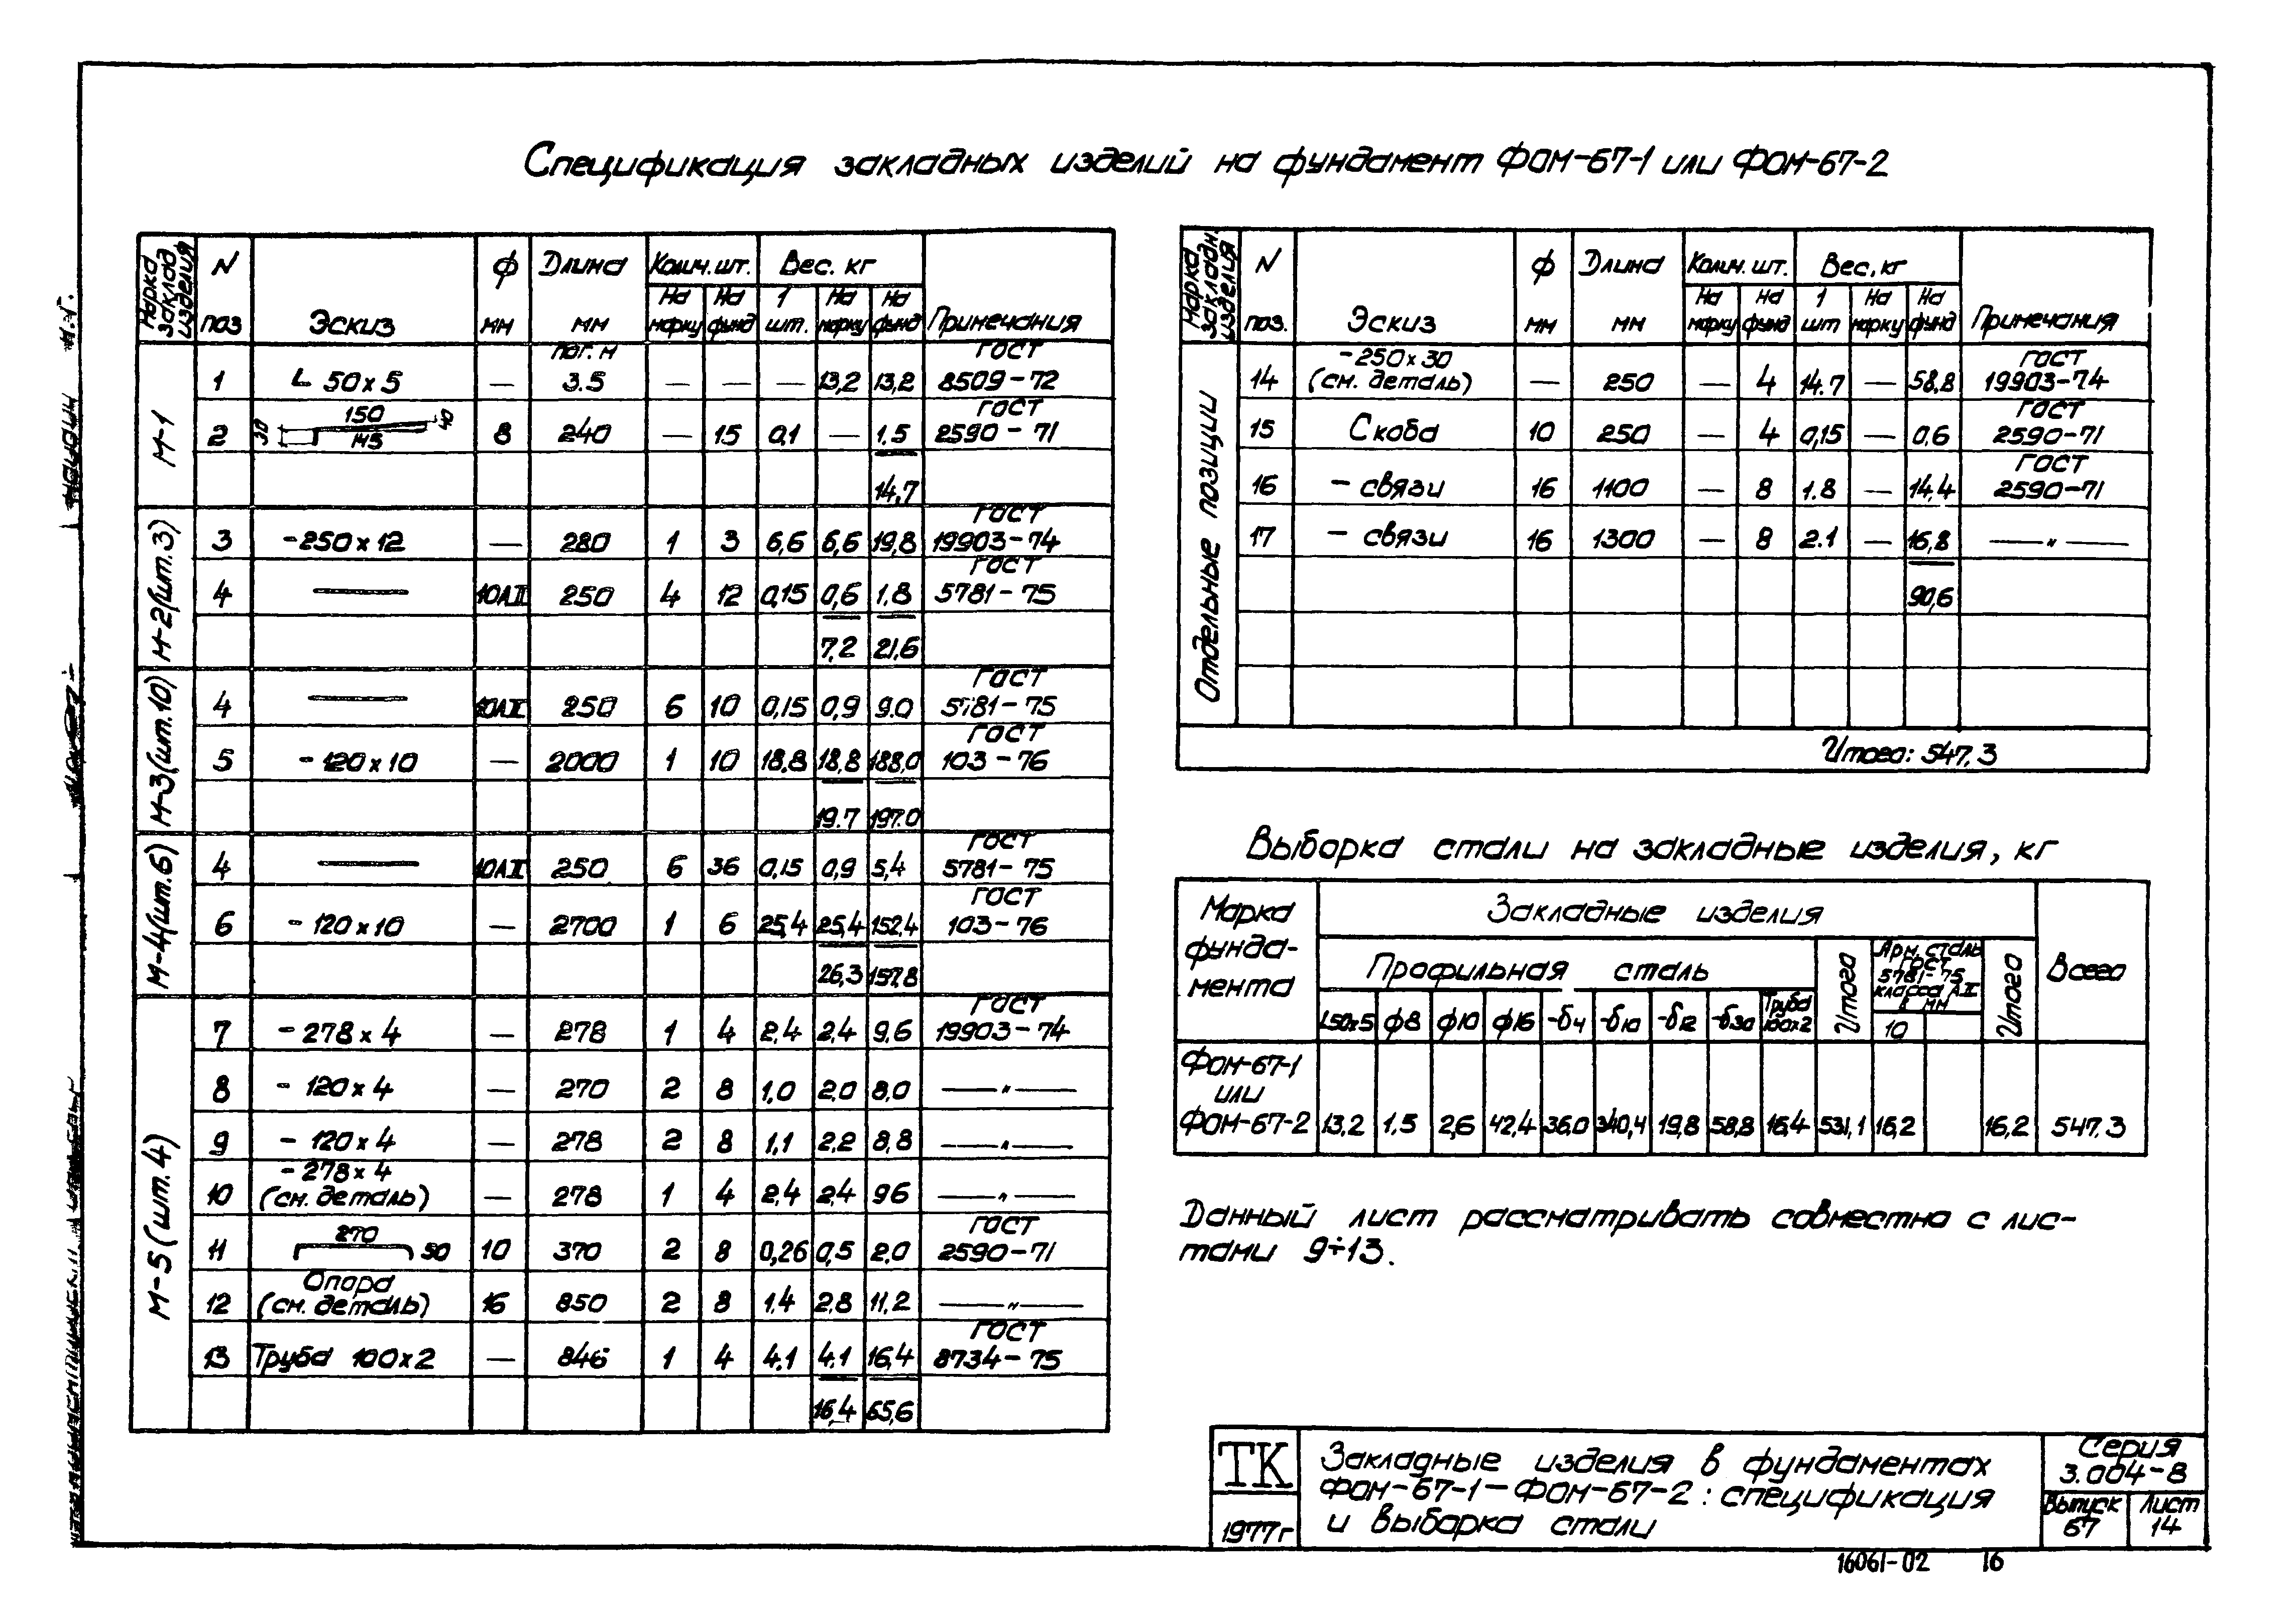 Спецификация закладных изделий на фундамент ФОМ-67-1 или ФОМ-67-2
Марка заклад. изделия | N поз | Эскиз | Ф мм | Длина мм | Колич. шт. На марку | На фунд | Вес. кг 1 шт. | На марку | На фунд | Примечания
М-1
1 | L 50х5 | — | пог. м 3.5 | — | — | — | 13,2 | 13,2 | ГОСТ 8509-72
2 | 30 150 145 40 | 8 | 240 | — | 15 | 0,1 | — | 1,5 | ГОСТ 2590-71
14,7
М-2(шт.3)
3 | -250х12 | — | 280 | 1 | 3 | 6,6 | 6,6 | 19,8 | ГОСТ 19903-74
4 | — | 10АII | 250 | 4 | 12 | 0,15 | 0,6 | 1,8 | ГОСТ 5781-75
7,2 | 21,6
М-3(шт.10)
4 | — | 10АII | 250 | 6 | 10 | 0,15 | 0,9 | 9.0 | ГОСТ 5781-75
5 | -120х10 | — | 2000 | 1 | 10 | 18,8 | 18,8 | 188,0 | ГОСТ 103-76
19.7 | 197.0
М-4(шт.6)
4 | — | 10АII | 250 | 6 | 36 | 0,15 | 0,9 | 5,4 | ГОСТ 5781-75
6 | -120х10 | — | 2700 | 1 | 6 | 25,4 | 25,4 | 152,4 | ГОСТ 103-76
26,3 | 157.8
М-5(шт.4)
7 | -278х4 | — | 278 | 1 | 4 | 2,4 | 2,4 | 9,6 | ГОСТ 19903-74
8 | -120х4 | — | 270 | 2 | 8 | 1,0 | 2,0 | 8,0 | —"—
9 | -120х4 | — | 278 | 2 | 8 | 1,1 | 2,2 | 8,8 | —"—
10 | -278х4 (см. деталь) | — | 278 | 1 | 4 | 2,4 | 2,4 | 96 | —"—
11 | 270 50 | 10 | 370 | 2 | 8 | 0,26 | 0,5 | 2,0 | ГОСТ 2590-71
12 | Опора (см. деталь) | 16 | 850 | 2 | 8 | 1,4 | 2,8 | 11,2 | —"—
13 | Труба 100х2 | — | 846 | 1 | 4 | 4.1 | 4.1 | 16,4 | ГОСТ 8734-75
16,4 | 65,6
Марка закладн. изделия | N поз. | Эскиз | Ф мм | Длина мм | Колич. шт. На марку | На фунд | Вес, кг 1 шт | На марку | На фунд | Примечания
Отдельные позиции
14 | -250х30 (см. деталь) | — | 250 | — | 4 | 14.7 | — | 58,8 | ГОСТ 19903-74
15 | Скоба | 10 | 250 | — | 4 | 0,15 | — | 0,6 | ГОСТ 2590-71
16 | - связи | 16 | 1100 | — | 8 | 1.8 | — | 14.4 | ГОСТ 2590-71
17 | - связи | 16 | 1300 | — | 8 | 2.1 | — | 16,8 | —"—
90,6
Итого: 547.3
Выборка стали на закладные изделия, кг
Марка фунда-мента | Закладные изделия | Всего
Профильная сталь | Итого | Арм. сталь ГОСТ 5781-75 класса АII в мм | Итого
L50х5 | ф8 | ф10 | ф16 | -δ4 | -δ10 | -δ12 | -δ30 | Труба 100х2 | 10
ФОМ-67-1
или
ФОМ-67-2 | 13,2 | 1.5 | 2,6 | 42,4 | 36,0 | 340,4 | 19,8 | 58,8 | 16,4 | 531,1 | 16,2 | 16,2 | 547.3
Данный лист рассматривать совместно с лис-
тами 9÷13.
ТК
1977г
Закладные изделия в фундаментах
ФОМ-67-1-ФОМ-67-2: спецификация
и выборка стали
Серия
3.004-8
Выпуск 67
Лист 14
16061-02 16